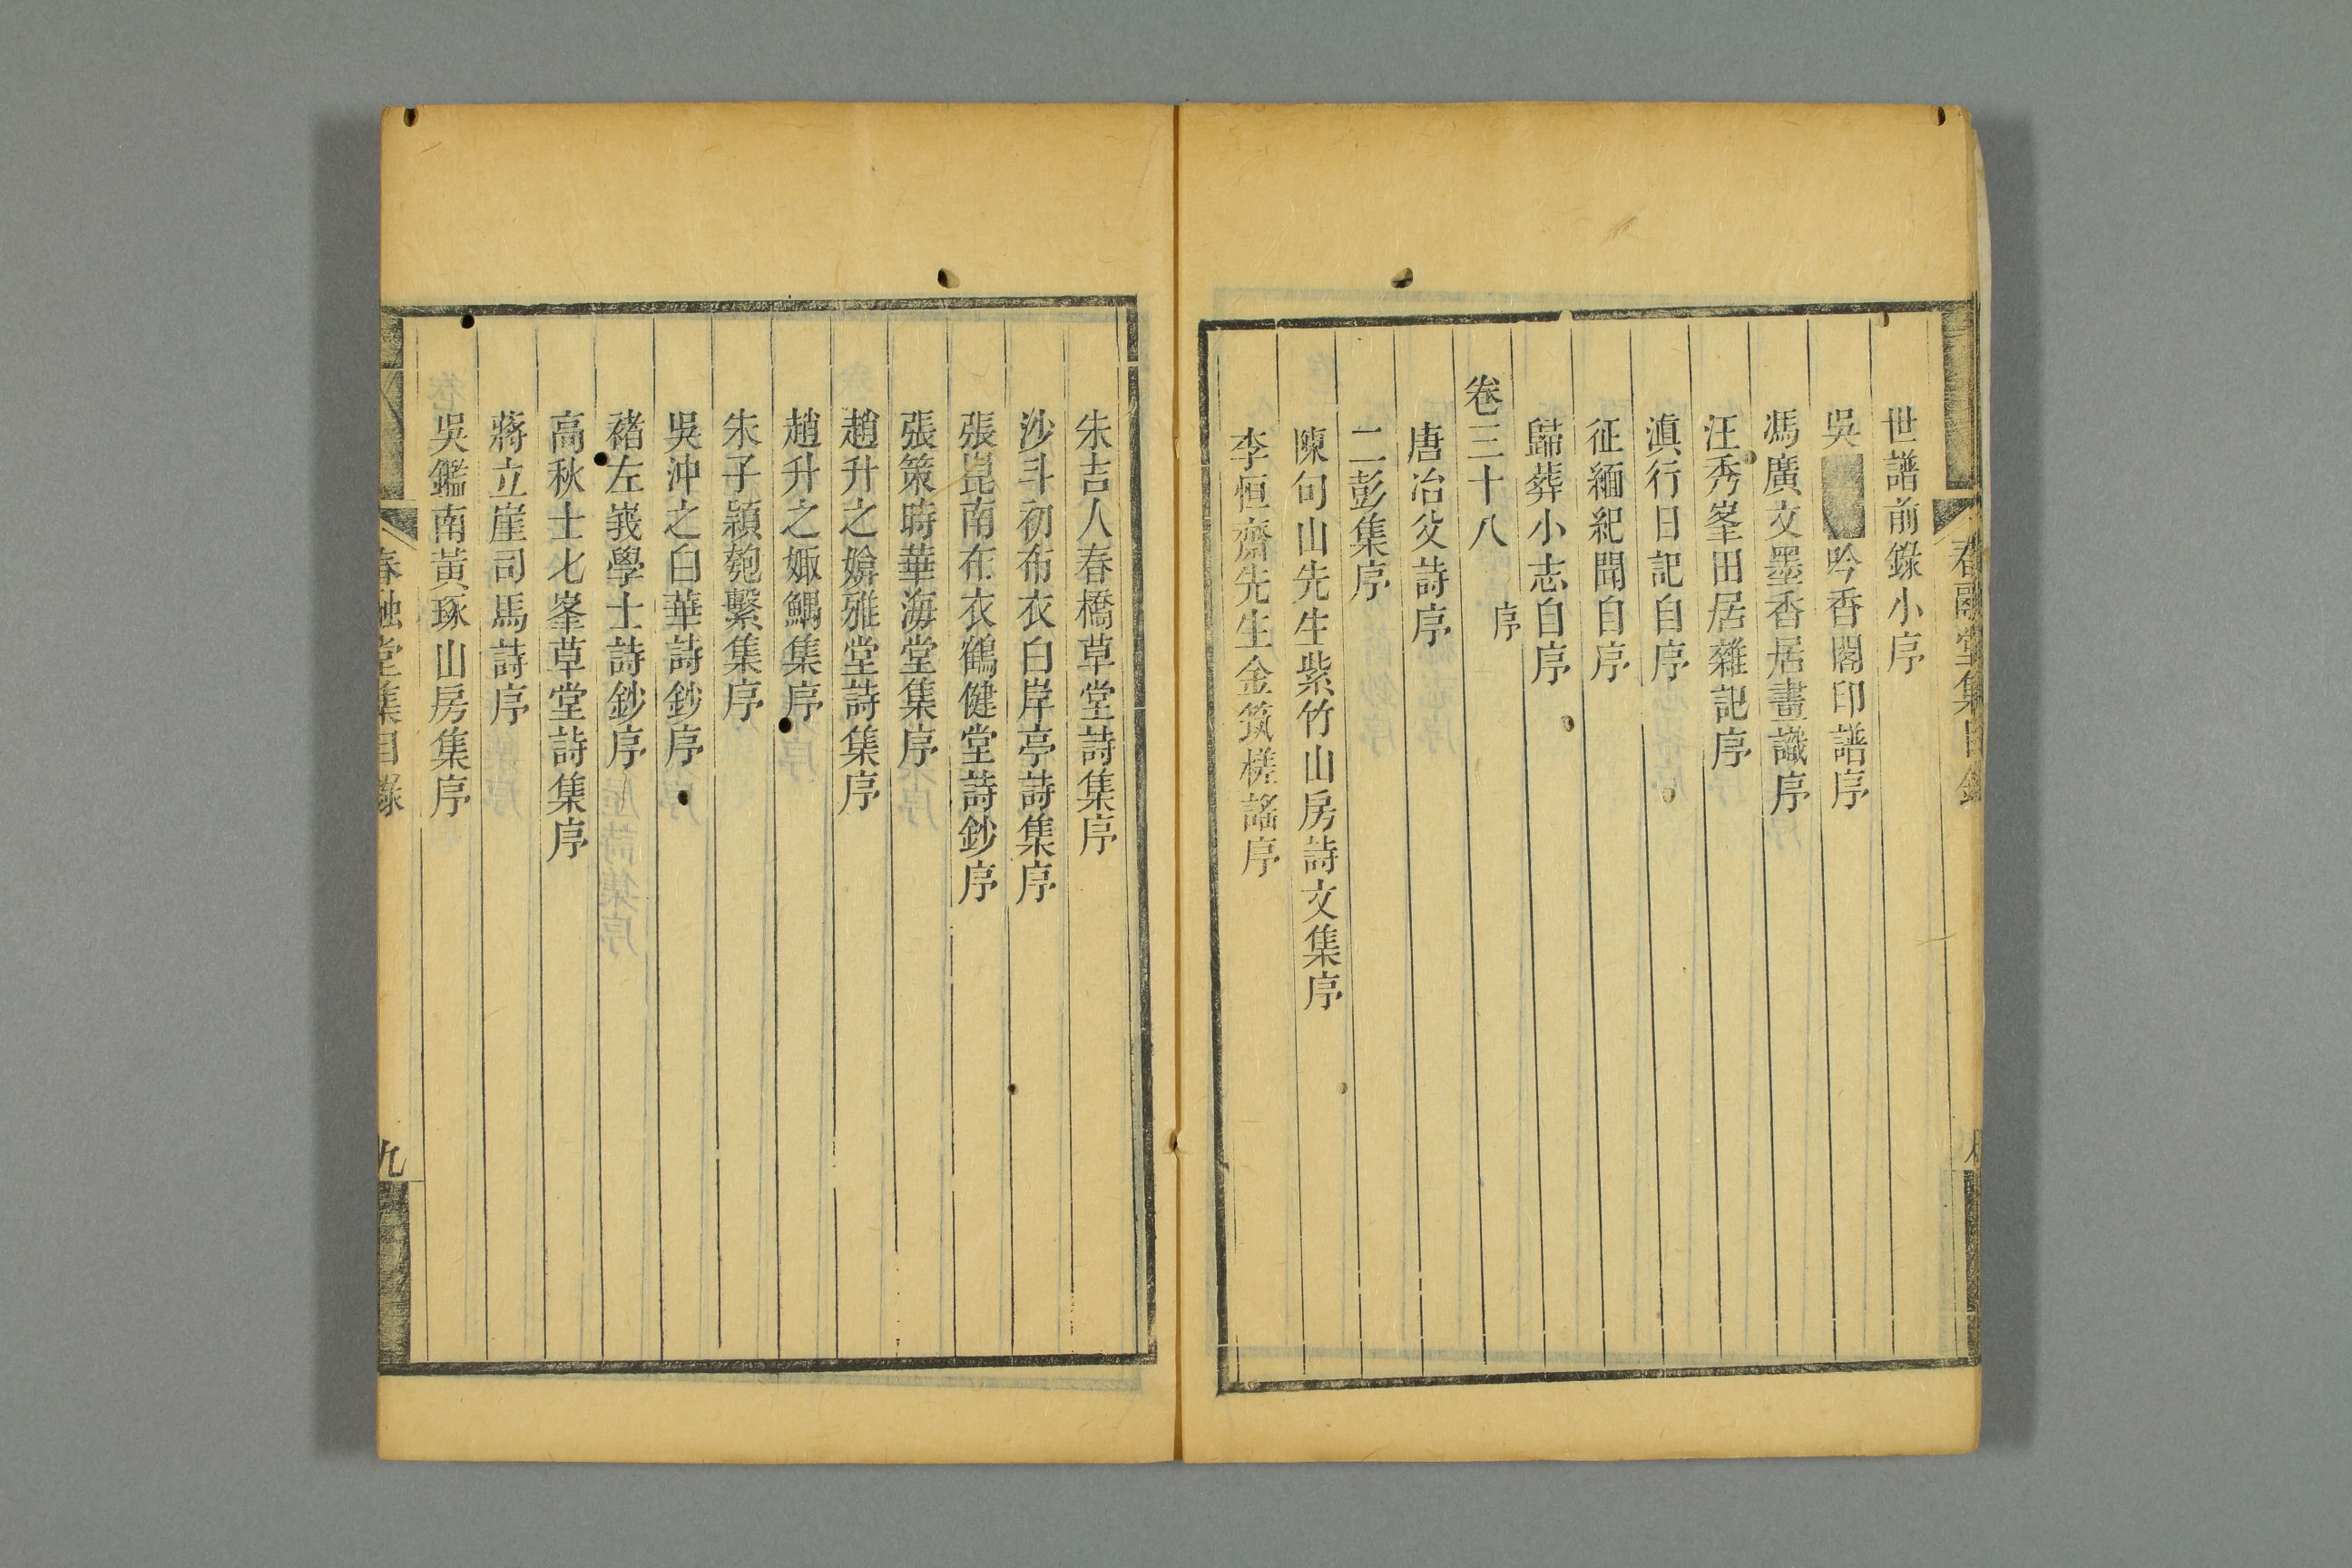 春融堂集目錄
世譜前錄小序
吳 吟香閣印譜序
馮廣文墨香居畫識序
汪秀峯田居雜記序
滇行日記自序
征緬紀聞自序
歸葬小志自序
卷三十八 序
唐冶父詩序
二彭集序
陳句山先生紫竹山房詩文集序
李恒齋先生金筑槎謠序
朱吉人春橋草堂詩集序
沙斗初布衣白岸亭詩集序
張崑南布衣鶴健堂詩鈔序
張策時華海堂集序
趙升之媕雅堂詩集序
趙升之娵鰅集序
朱子穎匏繫集序
吳沖之白華詩鈔序
褚左峩學士詩鈔序
高秋士北峯草堂詩集序
蔣立崖司馬詩序
吳鑑南黃琢山房集序
春融堂集目錄
九